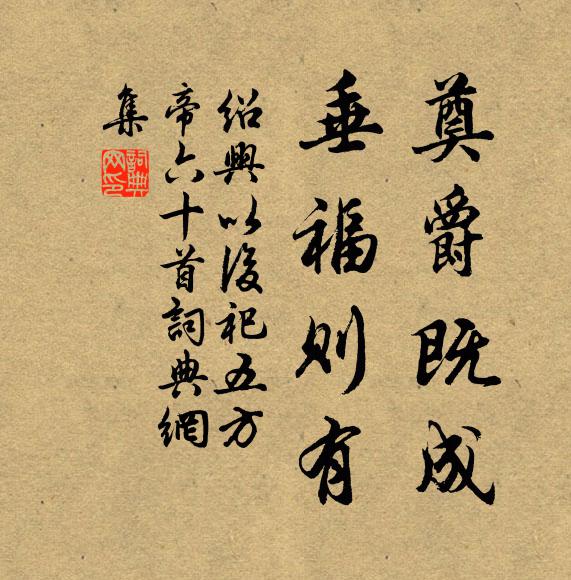 奠爵既成
垂福則有
紹興以後祀五方
帝六十首詞典網
集
詞典
網印